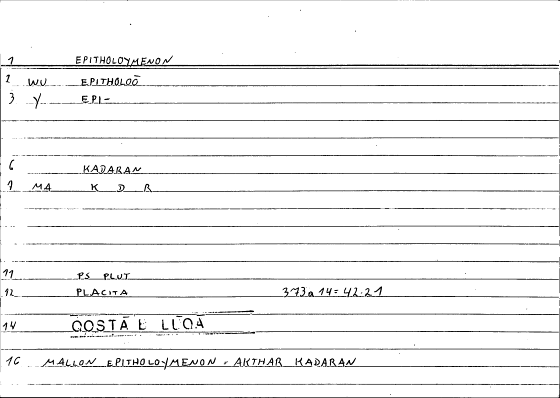 1 EPITHOLOYMENON
2 WU EPITHOLOŌ
3 Y EPI-
6 KADARAN
7 MA K D R
11 PS PLUT
12 PLACITA 373a14 = 42.21
14 QOSTĀ B LŪQĀ
16 MALLON EPITHOLOYMENON - AKTHAR KADARAN